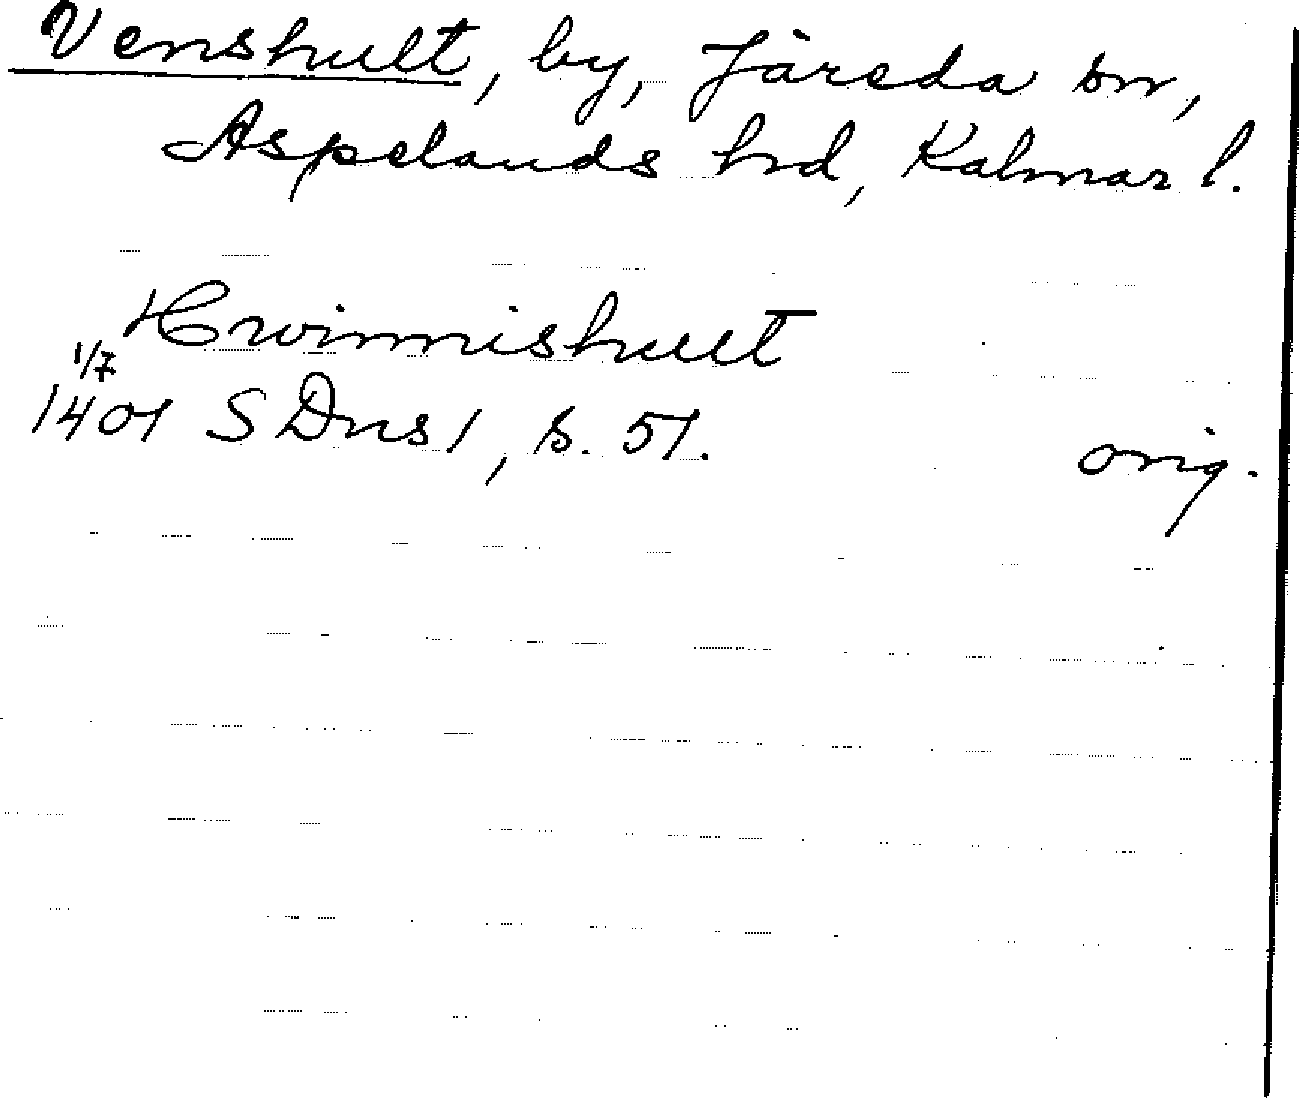 Venshult, by, Järeda sn,
Aspelands hd, Kalmar l.
Hwinnishult
1/7
1401 SDns1, s. 51.
orig.